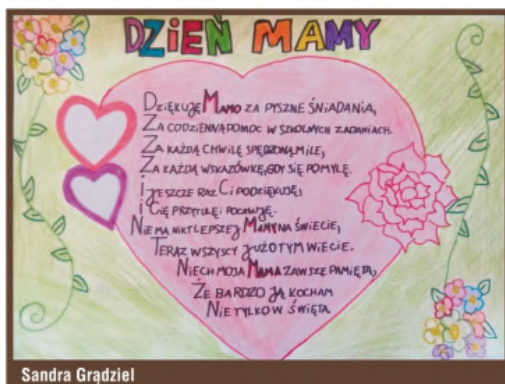 DZIEŃ MAMY
DZIĘKUJĘ MAMO ZA PYSZNE ŚNIADANIA,
ZA CODZIENNĄ POMOC W SZKOLNYCH ZADANIACH.
ZA KAŻDĄ CHWILĘ SPĘDZONĄ MILE,
ZA KAŻDĄ WSKAZÓWKĘ, GDY SIĘ POMYLĘ.
I JESZCZE RAZ CI PODZIĘKUJĘ,
I CIĘ PRZYTULĘ I POCAŁUJĘ.
NIE MA NIKT LEPSZEJ MAMY NA ŚWIECIE,
TERAZ WSZYSCY JUŻ O TYM WIECIE.
NIECH MOJA MAMA ZAWSZE PAMIĘTA,
ŻE BARDZO JĄ KOCHAM
NIE TYLKO W ŚWIĘTA
Sandra Grądziel